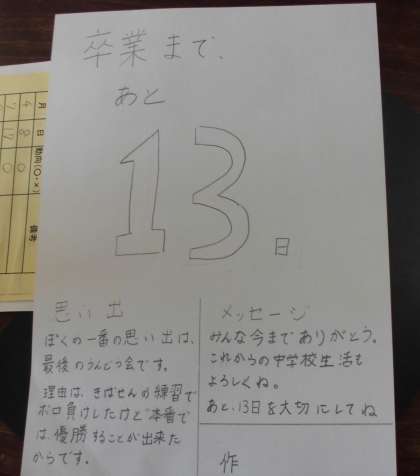 卒業まで、
あと
13
日
思い出
ぼくの一番の思い出は、
最後のうんどう会です。
理由は、きばせんの練習で
ボロ負けしたけど本番で
は、優勝することが出来た
からです。
メッセージ
みんな今までありがとう。
これからの中学校生活も
よろしくね。
あと、13日を大切にしてね
作
月 日 動向(○・×) 備考
4 8 ○
7 17 ○